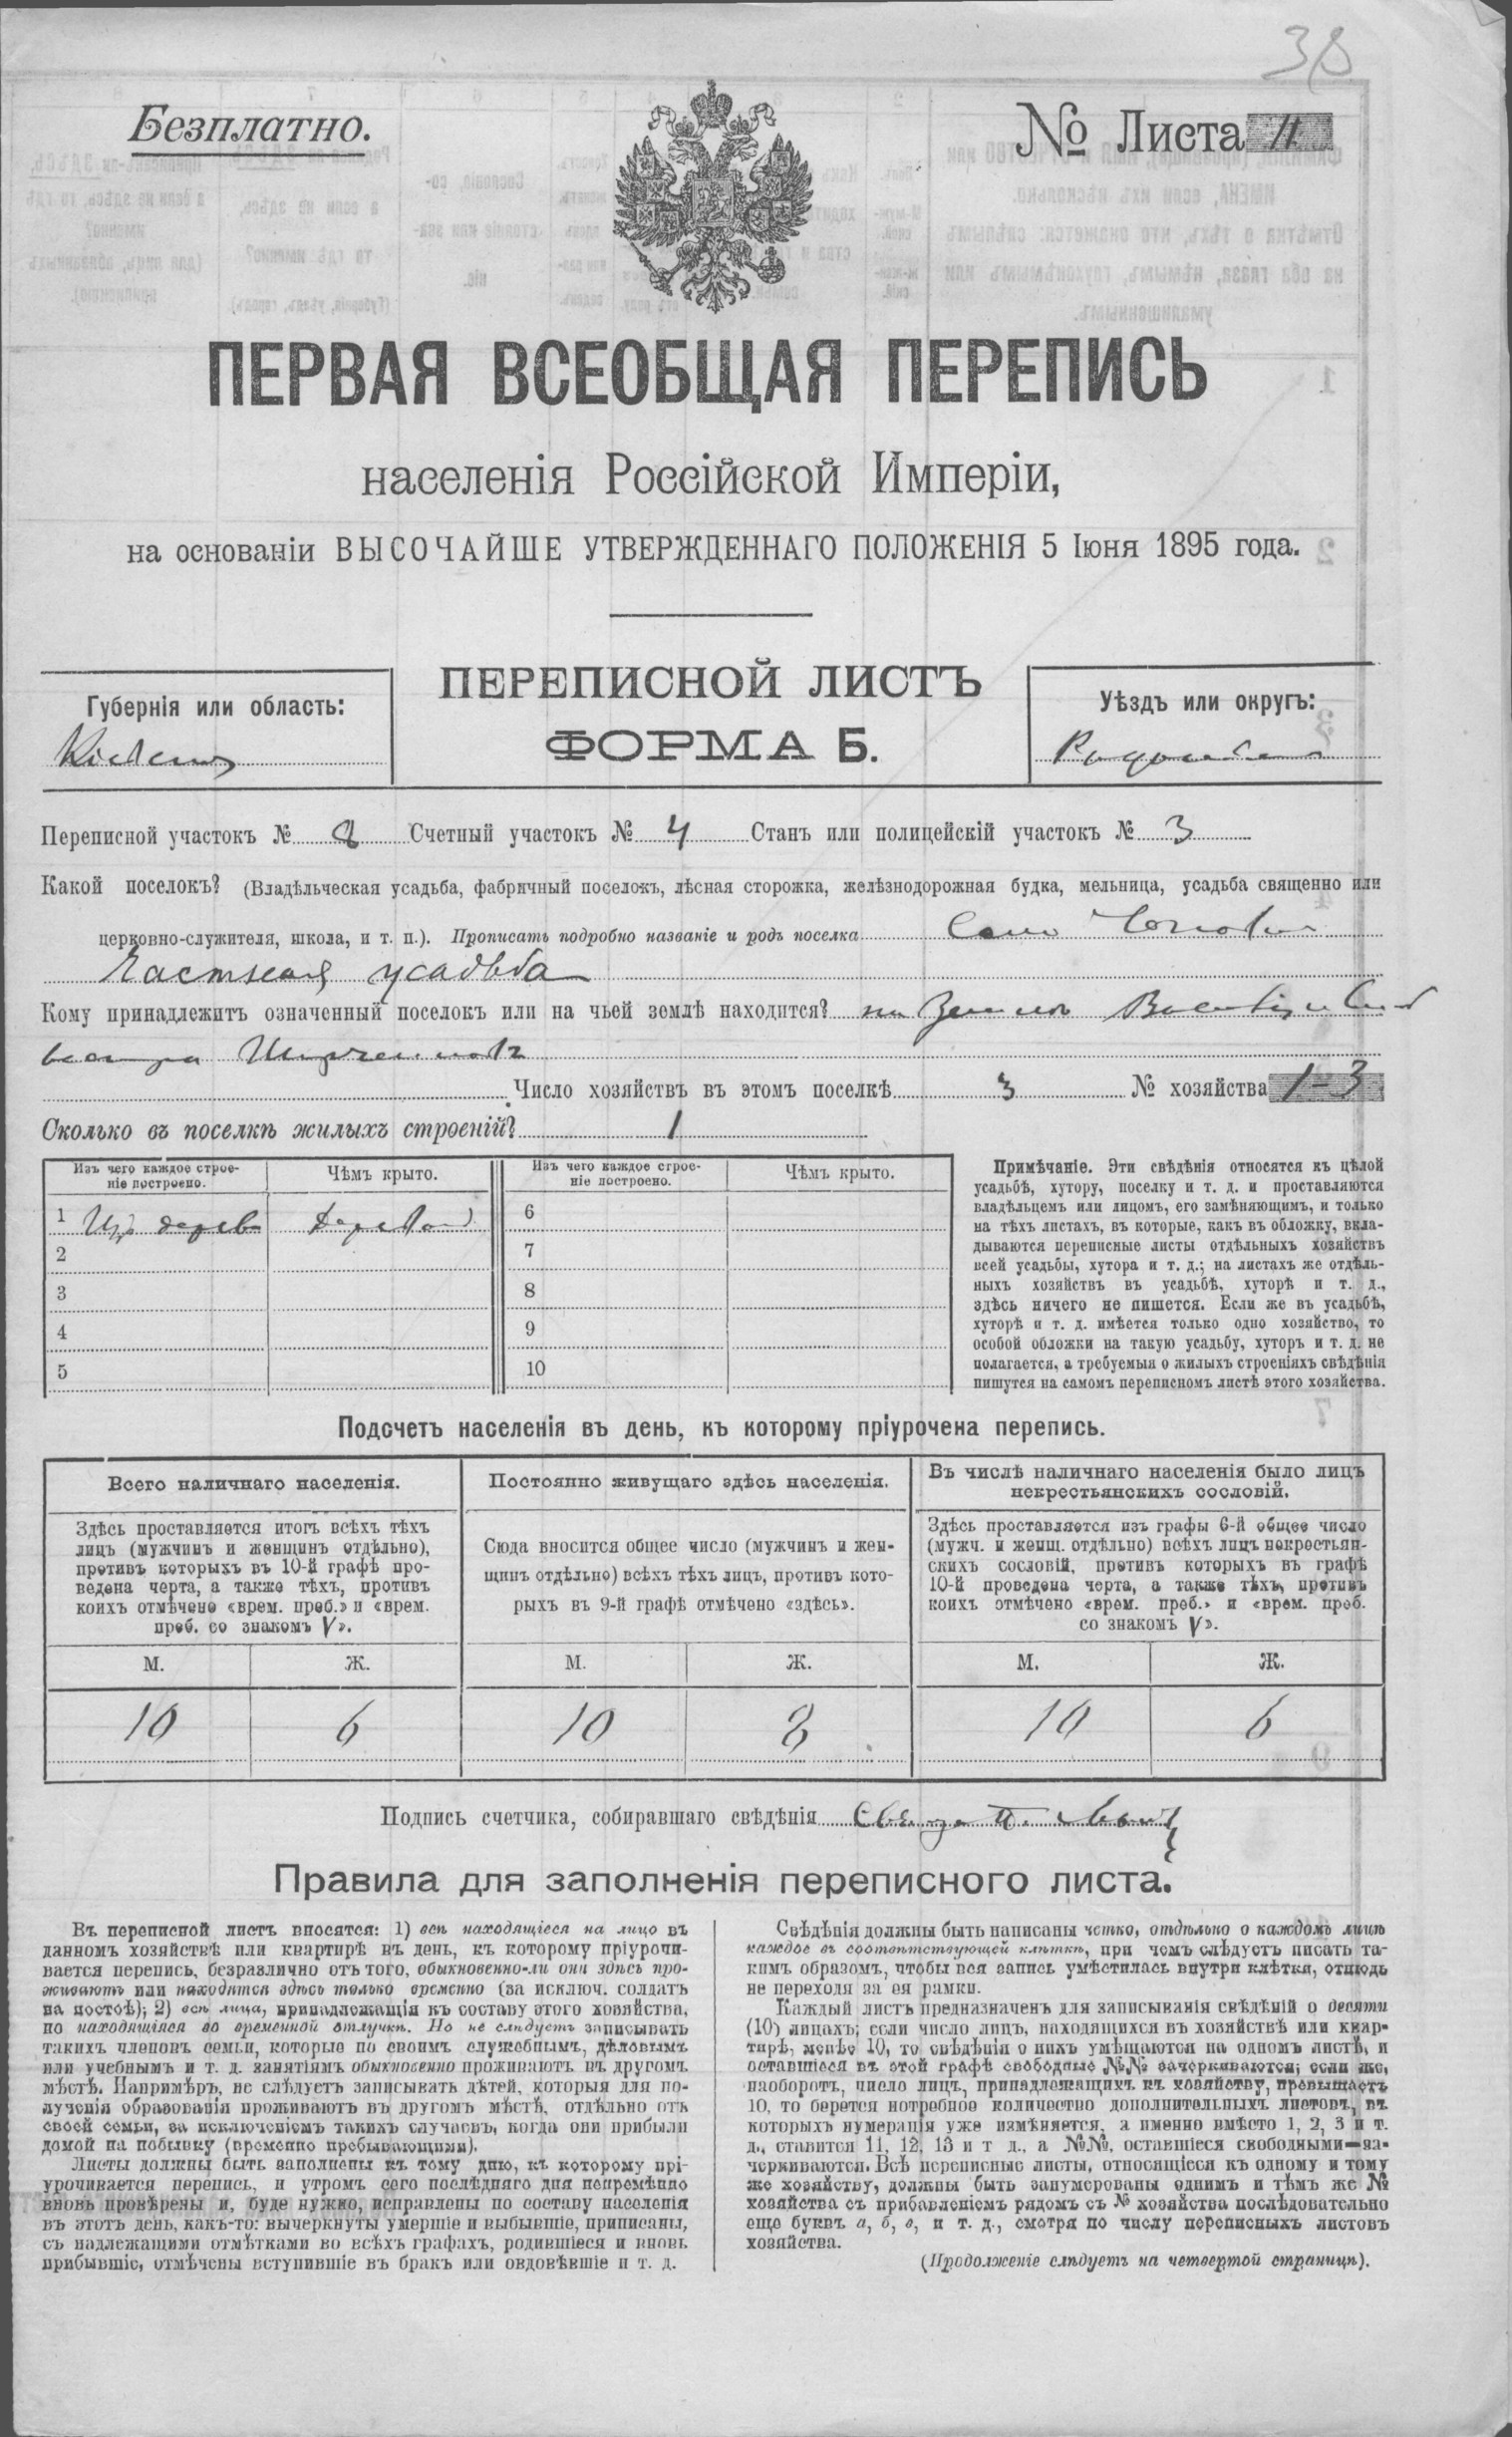 38
Безплатно.
№ Листа 4
ПЕРВАЯ ВСЕОБЩАЯ ПЕРЕПИСЬ
населенія Россійской Имперіи,
на основаніи ВЫСОЧАЙШЕ УТВЕРЖДЕННАГО ПОЛОЖЕНІЯ 5 Іюня 1895 года.
ПЕРЕПИСНОЙ ЛИСТЪ
ФОРМА Б.
Губернія или область:
Кіевская
Уѣздъ или округъ:
Переписной участокъ № 8 Счетный участокъ № 4 Станъ или полицейскій участокъ № 3
Какой поселокъ? (Владѣльческая усадьба, фабричный поселокъ, лѣсная сторожка, желѣзнодорожная будка, мельница, усадьба священно или
церковно-служителя, школа, и т. п.). Прописать подробно названіе и родъ поселка Село
Частная усадьба
Кому принадлежитъ означенный поселокъ или на чьей землѣ находится? на землѣ
Число хозяйствъ въ этомъ поселкѣ 3 № хозяйства 1-3
Сколько въ поселкѣ жилыхъ строеній? 1
Изъ чего каждое строе-
ніе построено.
Чѣмъ крыто.
Изъ чего каждое строе-
ніе построено.
Чѣмъ крыто.
1 Изъ дерева
2
3
4
5
6
7
8
9
10
Примѣчаніе. Эти свѣдѣнія относятся къ цѣлой
усадьбѣ, хутору, поселку и т. д. и проставляются
владѣльцемъ или лицомъ, его замѣняющимъ, и только
на тѣхъ листахъ, въ которые, какъ въ обложку, вкла-
дываются переписные листы отдѣльныхъ хозяйствъ
всей усадьбы, хутора и т. д.; на листахъ же отдѣль-
ныхъ хозяйствъ въ усадьбѣ, хуторѣ и т. д.,
здѣсь ничего не пишется. Если же въ усадьбѣ,
хуторѣ и т. д. имѣется только одно хозяйство, то
особой обложки на такую усадьбу, хуторъ и т. д. не
полагается, а требуемыя о жилыхъ строеніяхъ свѣдѣнія
пишутся на самомъ переписномъ листѣ этого хозяйства.
Подсчетъ населенія въ день, къ которому пріурочена перепись.
Всего наличнаго населенія.
Здѣсь проставляется итогъ всѣхъ тѣхъ
лицъ (мужчинъ и женщинъ отдѣльно),
противъ которыхъ въ 10-й графѣ про-
ведена черта, а также тѣхъ, противъ
коихъ отмѣчено «врем. преб.» и «врем.
преб. со знакомъ V».
Постоянно живущаго здѣсь населенія.
Сюда вносится общее число (мужчинъ и жен-
щинъ отдѣльно) всѣхъ тѣхъ лицъ, противъ кото-
рыхъ въ 9-й графѣ отмѣчено «здѣсь».
Въ числѣ наличнаго населенія было лицъ
некрестьянскихъ сословій.
Здѣсь проставляется изъ графы 6-й общее число
(мужч. и женщ. отдѣльно) всѣхъ лицъ некрестьян-
скихъ сословій, противъ которыхъ въ графѣ
10-й проведена черта, а также тѣхъ, противъ
коихъ отмѣчено «врем. преб.» и «врем. преб.
со знакомъ V».
М. Ж. М. Ж. М. Ж.
10 6 10 8 10 6
Подпись счетчика, собиравшаго свѣдѣнія
Правила для заполненія переписного листа.
Въ переписной листъ вносятся: 1) всѣ находящіеся на лицо въ
данномъ хозяйствѣ или квартирѣ въ день, къ которому пріурочи-
вается перепись, безразлично отъ того, обыкновенно-ли они здѣсь про-
живаютъ или находятся здѣсь только временно (за исключ. солдатъ
на постоѣ); 2) всѣ лица, принадлежащія къ составу этого хозяйства,
но находящіяся во временной отлучкѣ. Но не слѣдуетъ записывать
такихъ членовъ семьи, которые по своимъ служебнымъ, дѣловымъ
или учебнымъ и т. д. занятіямъ обыкновенно проживаютъ въ другомъ
мѣстѣ. Напримѣръ, не слѣдуетъ записывать дѣтей, которыя для по-
лученія образованія проживаютъ въ другомъ мѣстѣ, отдѣльно отъ
своей семьи, за исключеніемъ такихъ случаевъ, когда они прибыли
домой на побывку (временно пребывающими).
Листы должны быть заполнены къ тому дню, къ которому прі-
урочивается перепись, и утромъ сего послѣдняго дня непремѣнно
вновь провѣрены и, буде нужно, исправлены по составу населенія
въ этотъ день, какъ-то: вычеркнуты умершіе и выбывшіе, приписаны,
съ надлежащими отмѣтками во всѣхъ графахъ, родившіеся и вновь
прибывшіе, отмѣчены вступившіе въ бракъ или овдовѣвшіе и т. д.
Свѣдѣнія должны быть написаны четко, отдѣльно о каждомъ лицѣ
каждое въ соотвѣтствующей клѣткѣ, при чемъ слѣдуетъ писать та-
кимъ образомъ, чтобы вся запись умѣстилась внутри клѣтки, отнюдь
не переходя за ея рамки.
Каждый листъ предназначенъ для записыванія свѣдѣній о десяти
(10) лицахъ; если число лицъ, находящихся въ хозяйствѣ или квар-
тирѣ, менѣе 10, то свѣдѣнія о нихъ умѣщаются на одномъ листѣ, и
оставшіеся въ этой графѣ свободные №№ зачеркиваются; если же,
наоборотъ, число лицъ, принадлежащихъ къ хозяйству, превышаетъ
10, то берется потребное количество дополнительныхъ листовъ, въ
которыхъ нумерація уже измѣняется, а именно вмѣсто 1, 2, 3 и т.
д., ставится 11, 12, 13 и т д., а №№, оставшіеся свободными—за-
черкиваются. Всѣ переписные листы, относящіеся къ одному и тому
же хозяйству, должны быть занумерованы однимъ и тѣмъ же №
хозяйства съ прибавленіемъ рядомъ съ № хозяйства послѣдовательно
еще буквъ а, б, в, и т. д., смотря по числу переписныхъ листовъ
хозяйства.
(Продолженіе слѣдуетъ на четвертой страницѣ).